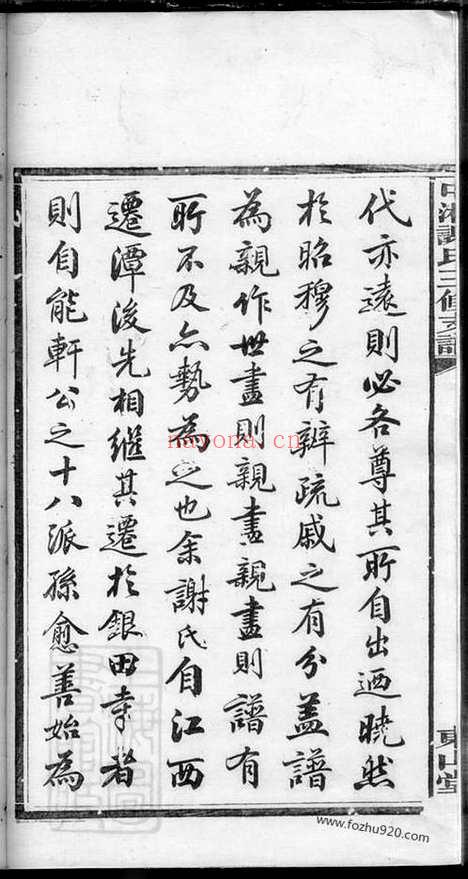 中湘謝氏三修支譜
東山堂
代亦遠則必各尊其所自出迺曉然
於昭穆之有辨疏戚之有分蓋譜
為親作世盡則親盡親盡則譜有
所不及亦勢為之也余謝氏自江西
遷潭後先相繼其遷於銀田寺者
則自能軒公之十八派孫愈善始為
nayona.cn
www.fozhu920.com